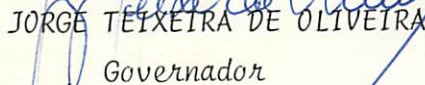 JORGE TEIXEIRA DE OLIVEIRA
Governador